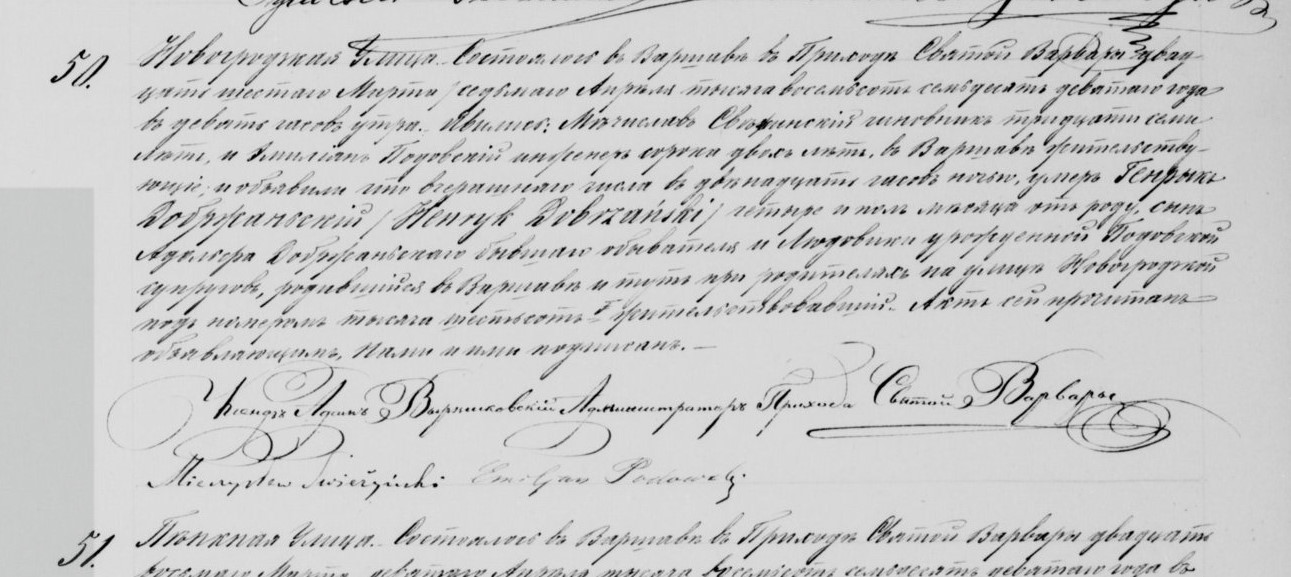 50. Новогродзкая Улица. Состоялось въ Варшавѣ въ Приходѣ Святой Варвары двад-
цать шестаго Марта /седьмаго Апрѣля тысяча восемьсотъ семьдесятъ девятаго года
въ девять часовъ утра. Явились: Мѣчиславъ Свѣжинскій чиновникъ тридцати семи
лѣтъ, и Эмиліанъ Подовскій инженеръ сорока двохъ лѣтъ, въ Варшавѣ жительству-
ющіе, и объявили что вчерашняго числа въ двѣнадцать часовъ ночью, умеръ Генрыкъ
Добржаньскій /Henryk Dobrzański/ четыре и полъ мѣсяца отъ роду, сынъ
Адольфа Добржаньскаго бывшаго обывателя и Людовики урожденной Подовской
супруговъ, родившійся въ Варшавѣ и тутъ при родителяхъ на улицѣ Новогродзкой
подъ номеромъ тысяча шестьсотъ жительствовавшій. Актъ сей прочитанъ
объявляющимъ, Нами и ими подписанъ. —
Ксендзъ Адамъ Администраторъ Прихода Святой Варвары
Mieczysław Świeżyński Emiljan Podowski
51. Пѣнкная Улица. Состоялось въ Варшавѣ въ Приходѣ Святой Варвары двадцать
восьмаго Марта, девятаго Апрѣля тысяча восемьсотъ семьдесятъ девятаго года въ